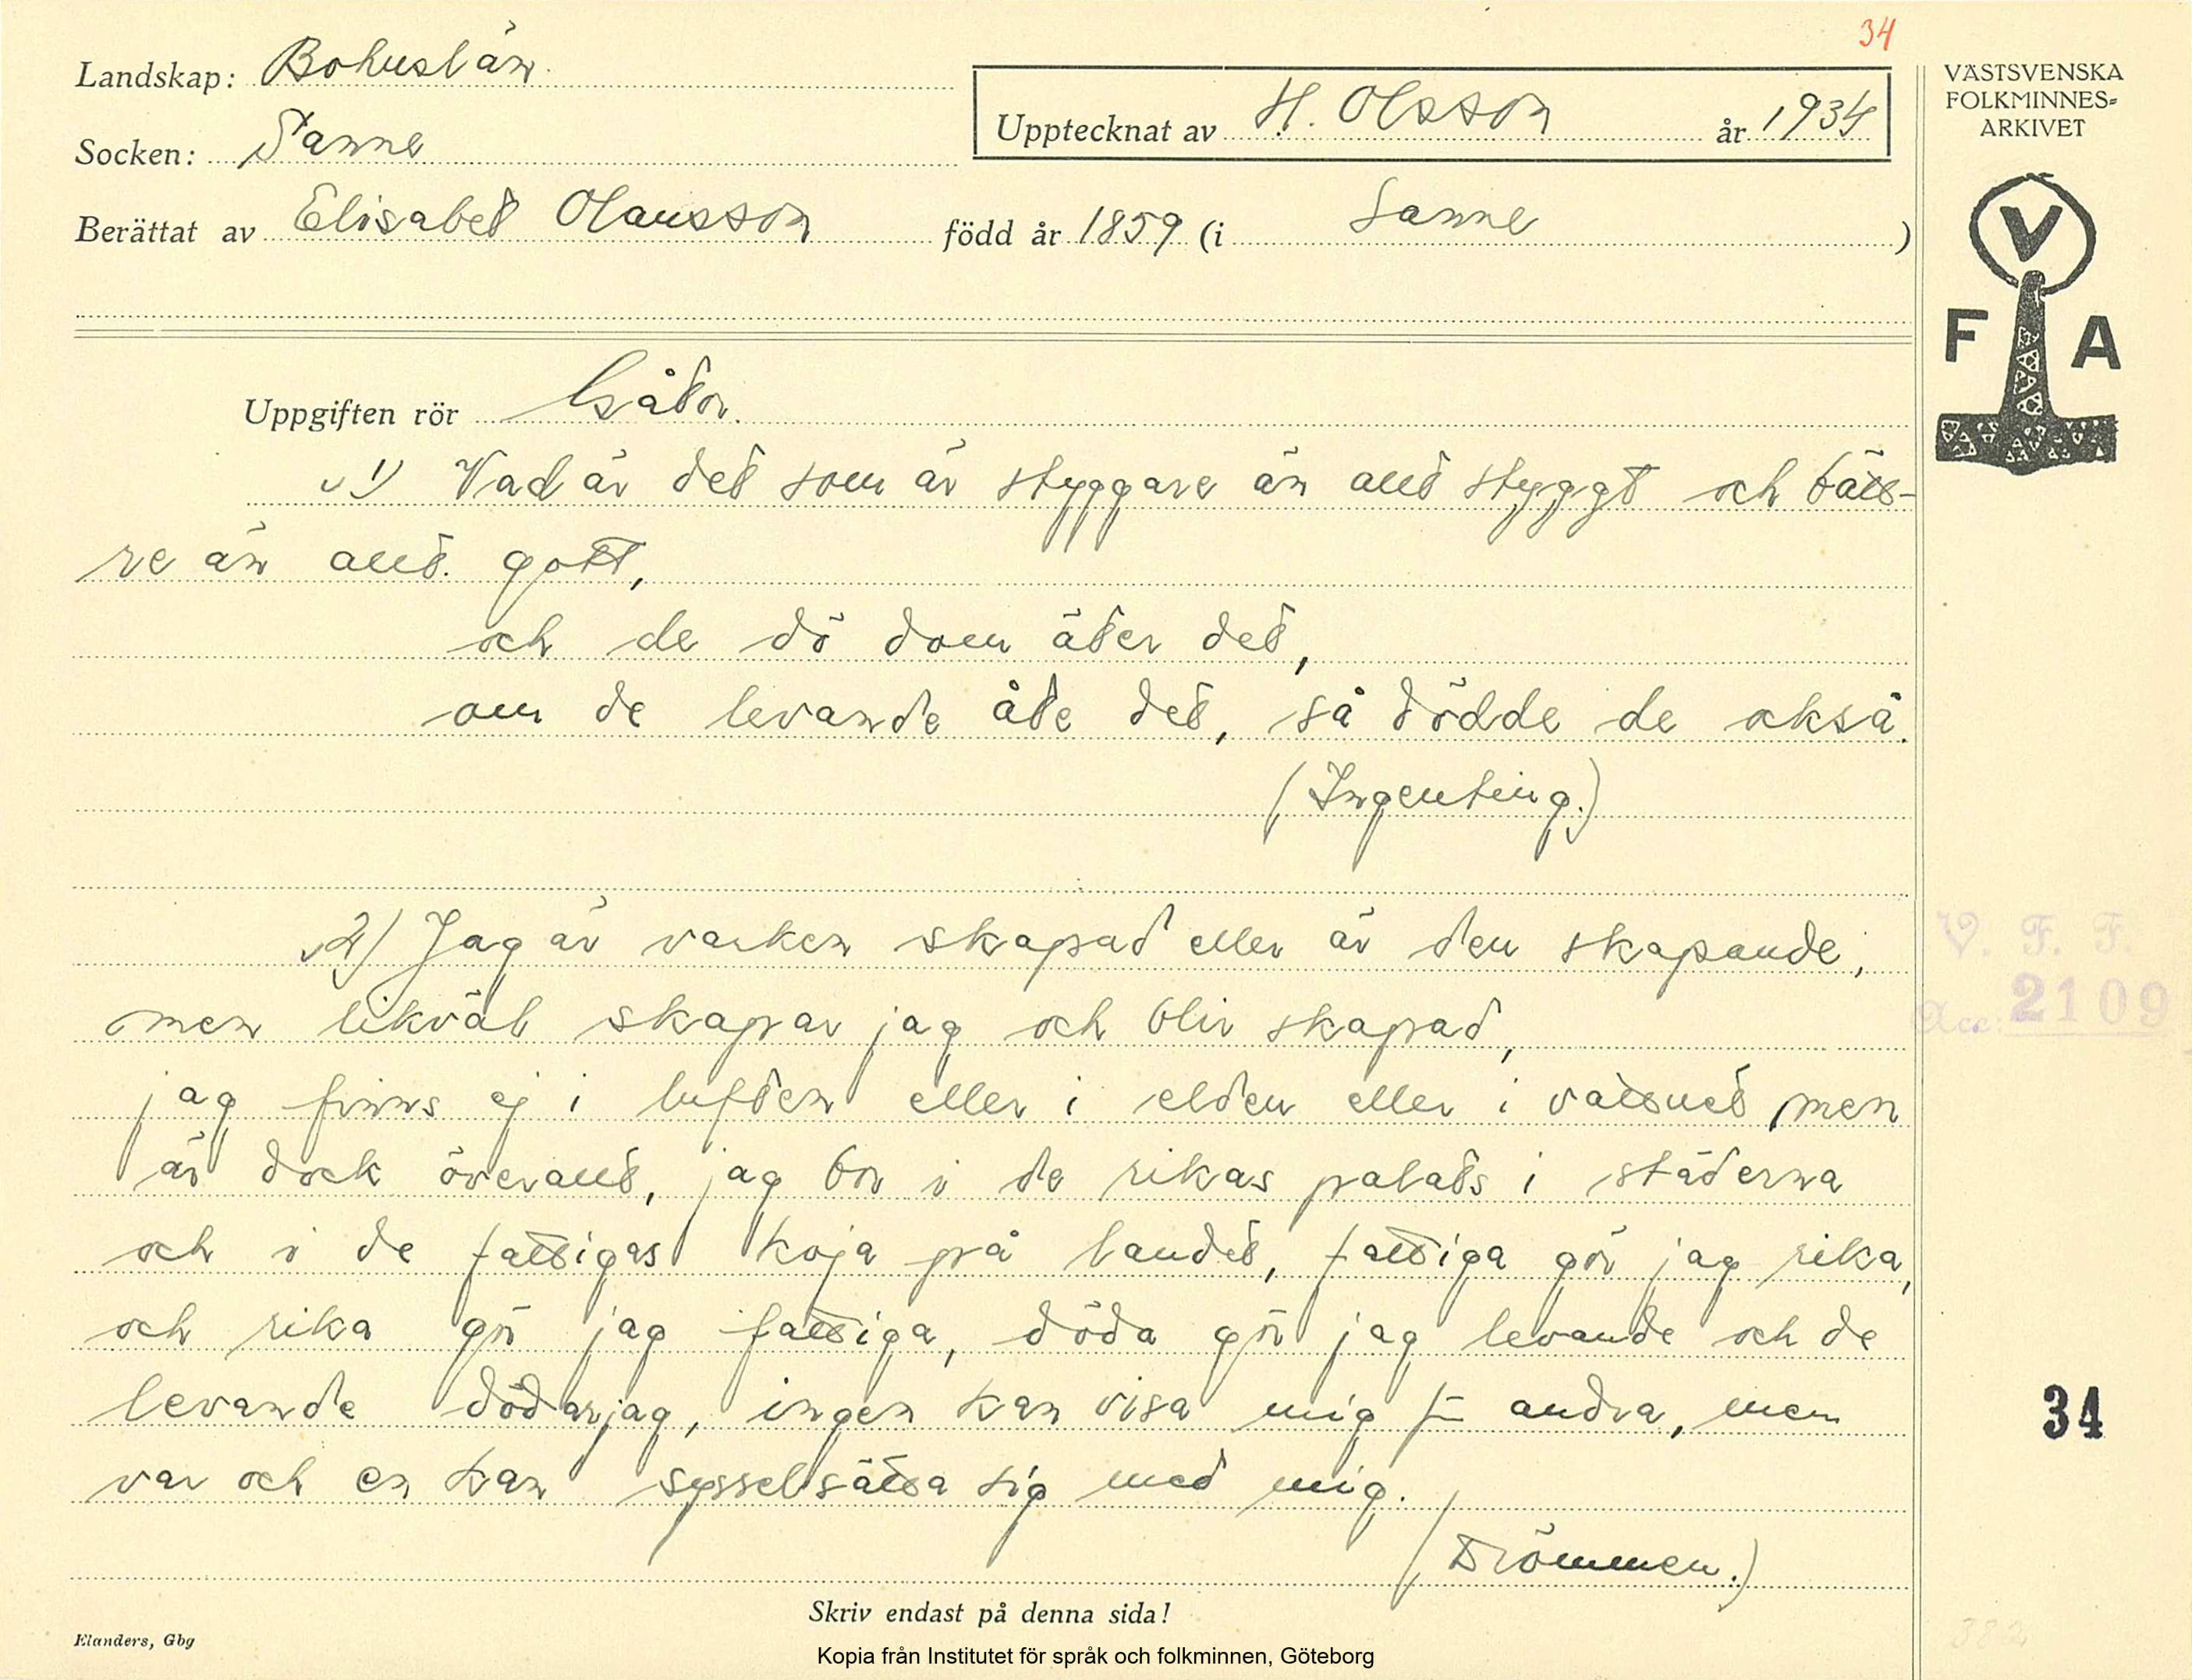 34
Landskap: Bohuslän.
Upptecknat av H. Olsson år 1934
Socken: Sanne
Berättat av Elisabet Olausson född år 1859 (i Sanne)
VÄSTSVENSKA
FOLKMINNES-
ARKIVET
V
F A
Uppgiften rör Gåtor.
1) Vad är det som är styggare än allt styggt och bätt-
re än allt gott,
och de dö dom äter det,
om de levande åte det, så dödde de också.
(Ingenting.)
2) Jag är varken skapad eller är den skapande,
men likväl skapar jag och blir skapad,
jag finns ej i luften eller i elden eller i vattnet, men
är dock överallt, jag bor i de rikas palats i städerna
och i de fattigas koja på landet, fattiga gör jag rika,
och rika gör jag fattiga, döda gör jag levande och de
levande dödar jag, ingen kan visa mig f- andra, men
var och en kan sysselsätta sig med mig.
(Drömmen.)
V. F. F.
Acc. 2109
34
Skriv endast på denna sida!
Elanders, Gbg
382
Kopia från Institutet för språk och folkminnen, Göteborg